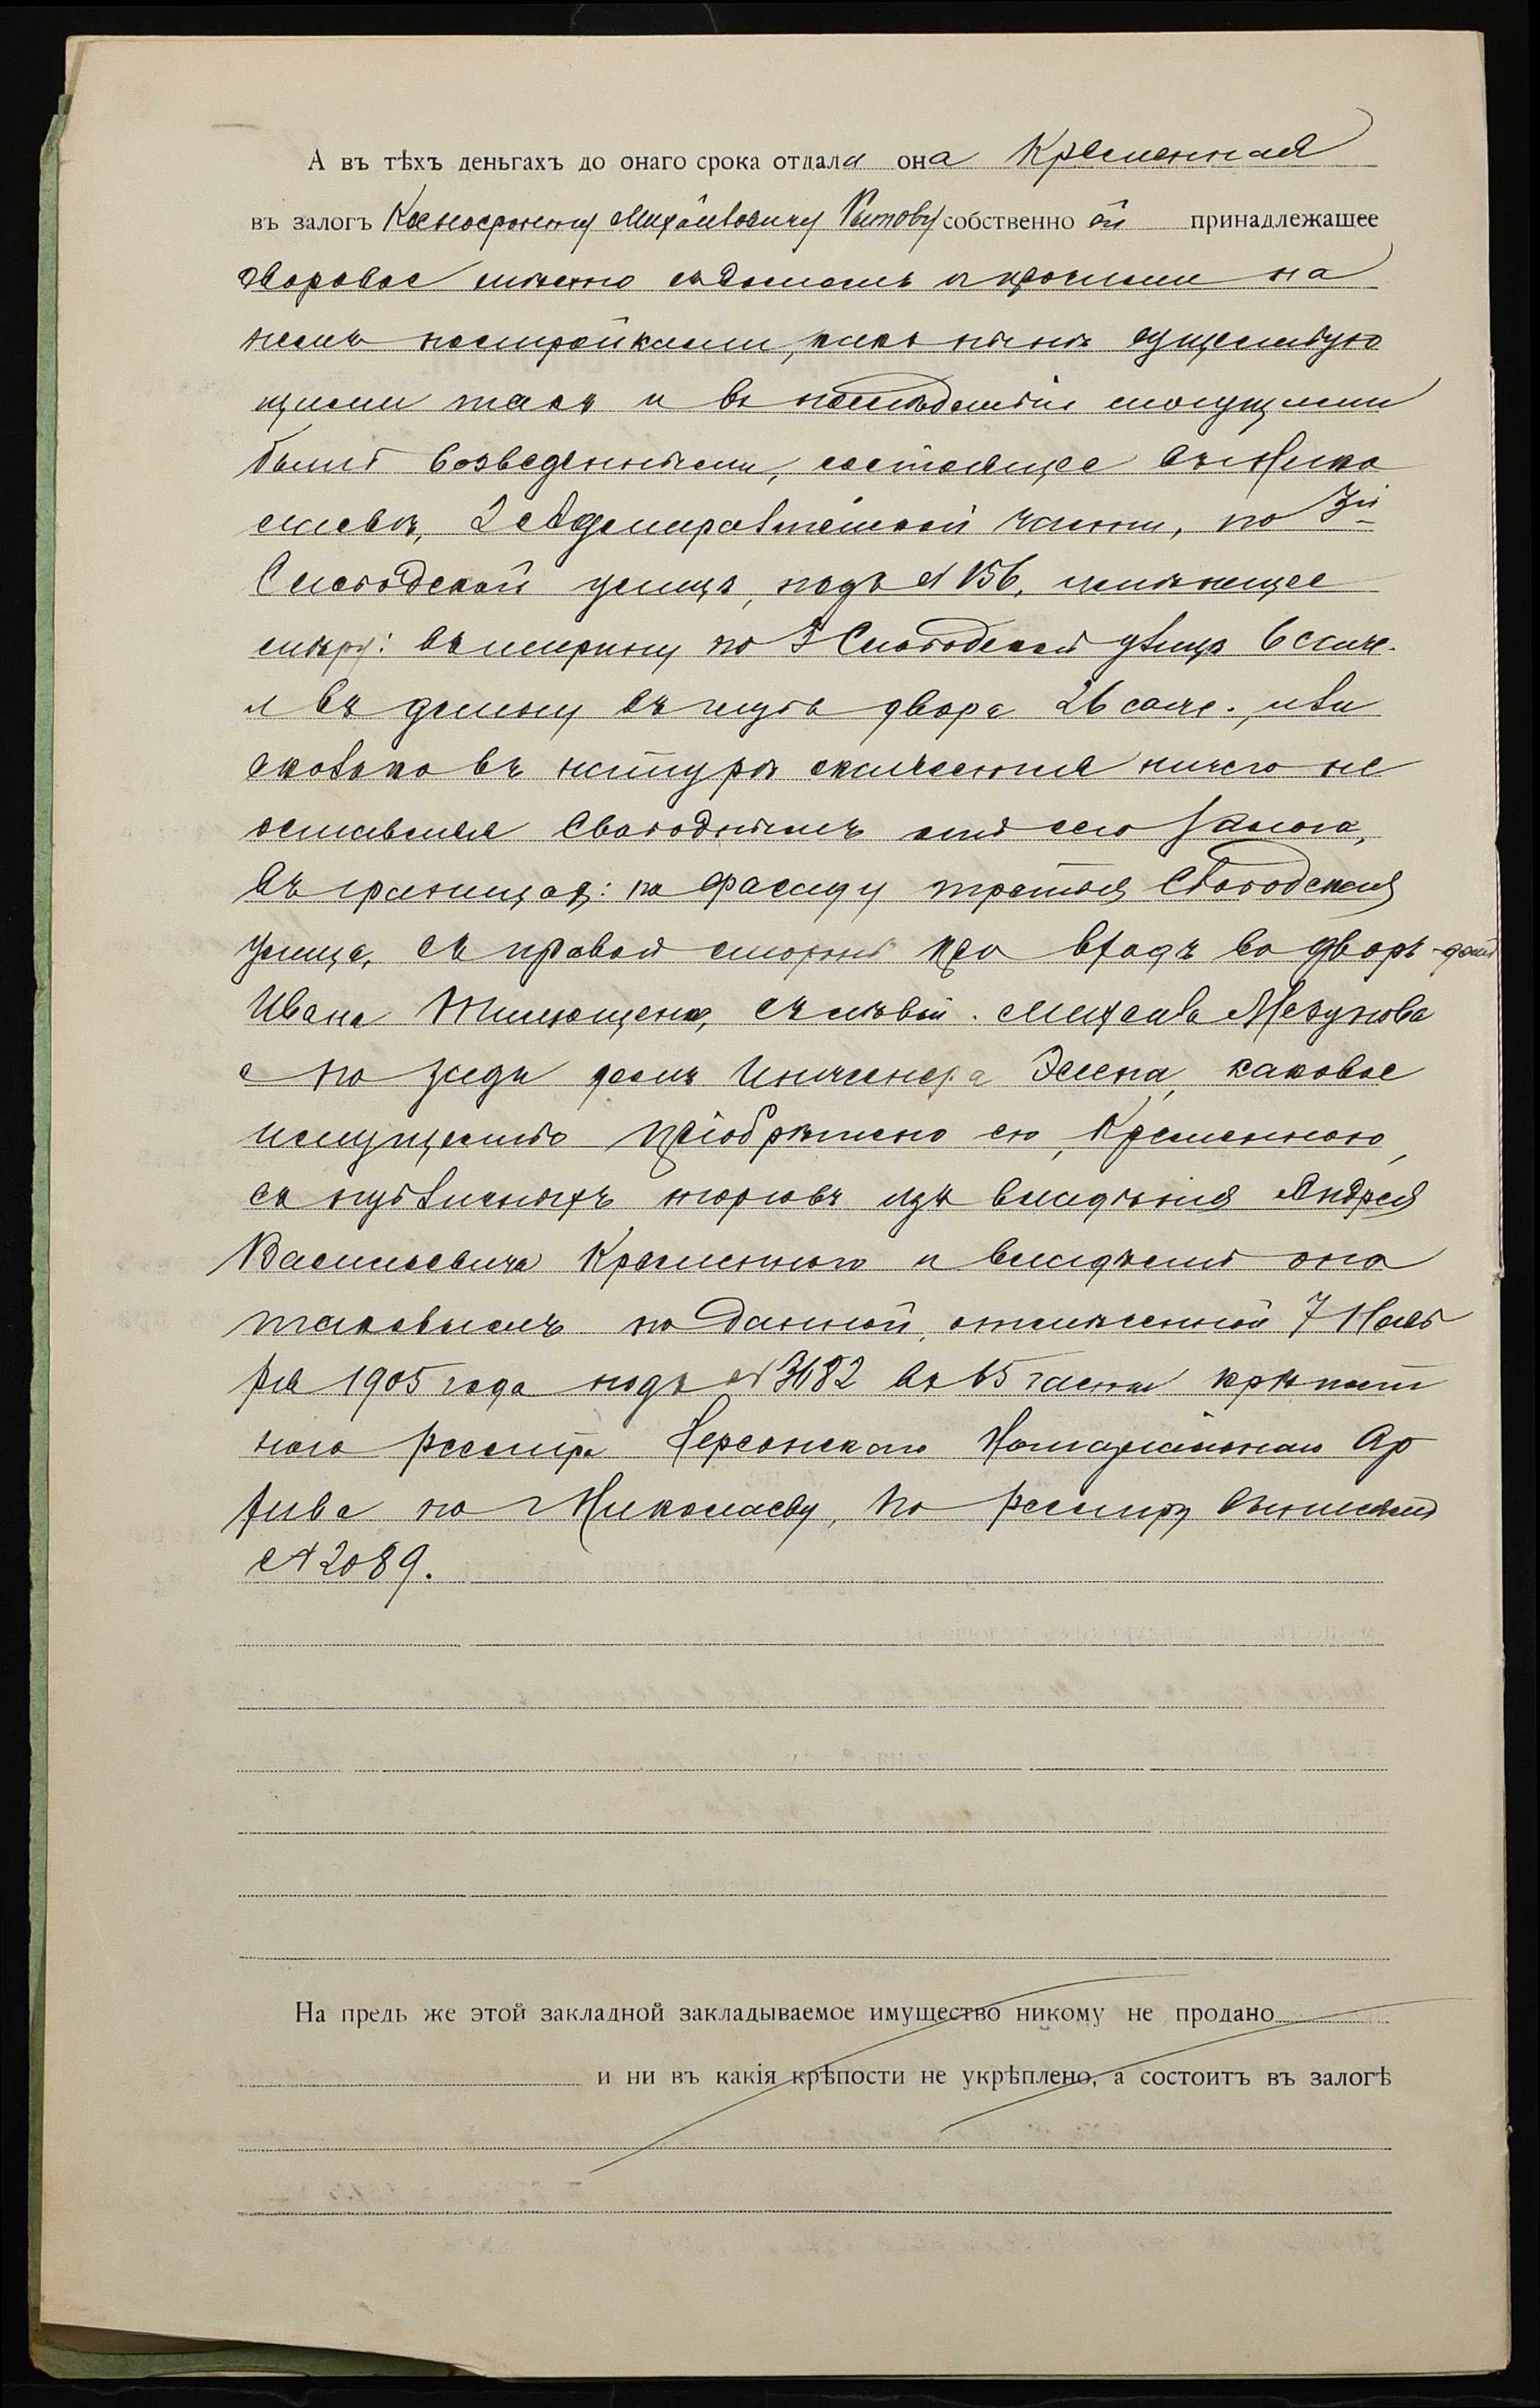 А въ тѣхъ деньгахъ до онаго срока отдала она Кременная
въ залогъ Михайловичу собственно ей принадлежащее
дворовое мѣсто съ домомъ и прочими на
немъ постройками, какъ нынѣ существую
щими такъ и въ послѣдствіи могущими
быть возведенными, состоящее въ Нико
лаевѣ, 2 Адмиралтейской части, по 3й
Слободской улицѣ, подъ № 156, имѣющее
мѣру: въ ширину по 3 Слободской улицѣ 6 саж.
и въ длину въ глубь двора 26 саж., или
сколько въ натурѣ окажется ничего не
оставляя свободнымъ отъ сего залога,
въ границахъ: по фасаду третья Слободская
улица, съ правой стороны при входѣ во дворъ - домъ
Ивана съ лѣвой Михаила
а по зади домъ Инженера каковое
имущество пріобрѣтено ею, Кременною,
съ публичныхъ торговъ изъ владѣнія Андрея
Васильевича Кременного и владѣетъ она
таковымъ по данной, отмѣченной 7 Нояб
ря 1905 года подъ № 3182 въ 15 части крѣпост
ного реестра Херсонского Нотаріального Ар
хива по Николаеву, по реестру
№ 2089.
На предь же этой закладной закладываемое имущество никому не продано
и ни въ какія крѣпости не укрѣплено, а состоитъ въ залогѣ